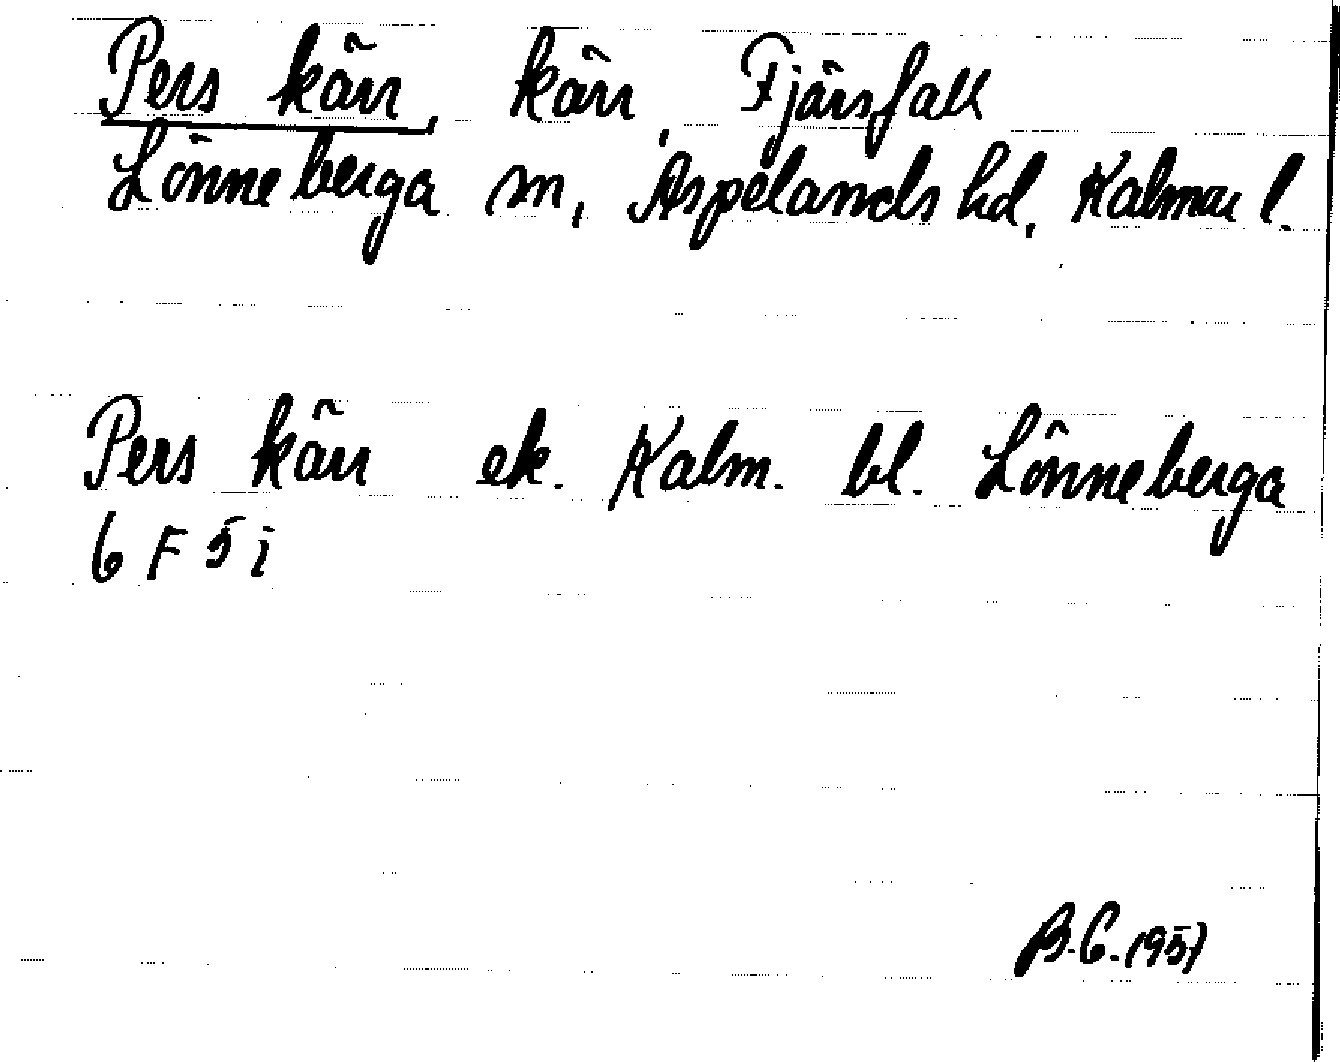 Pers kärr, kärr, Fjärsfall
Lönneberga sn, Aspelands hd, Kalmar l.
Pers kärr ek. Kalm. bl. Lönneberga
6 F 5 i
B.C. (95)